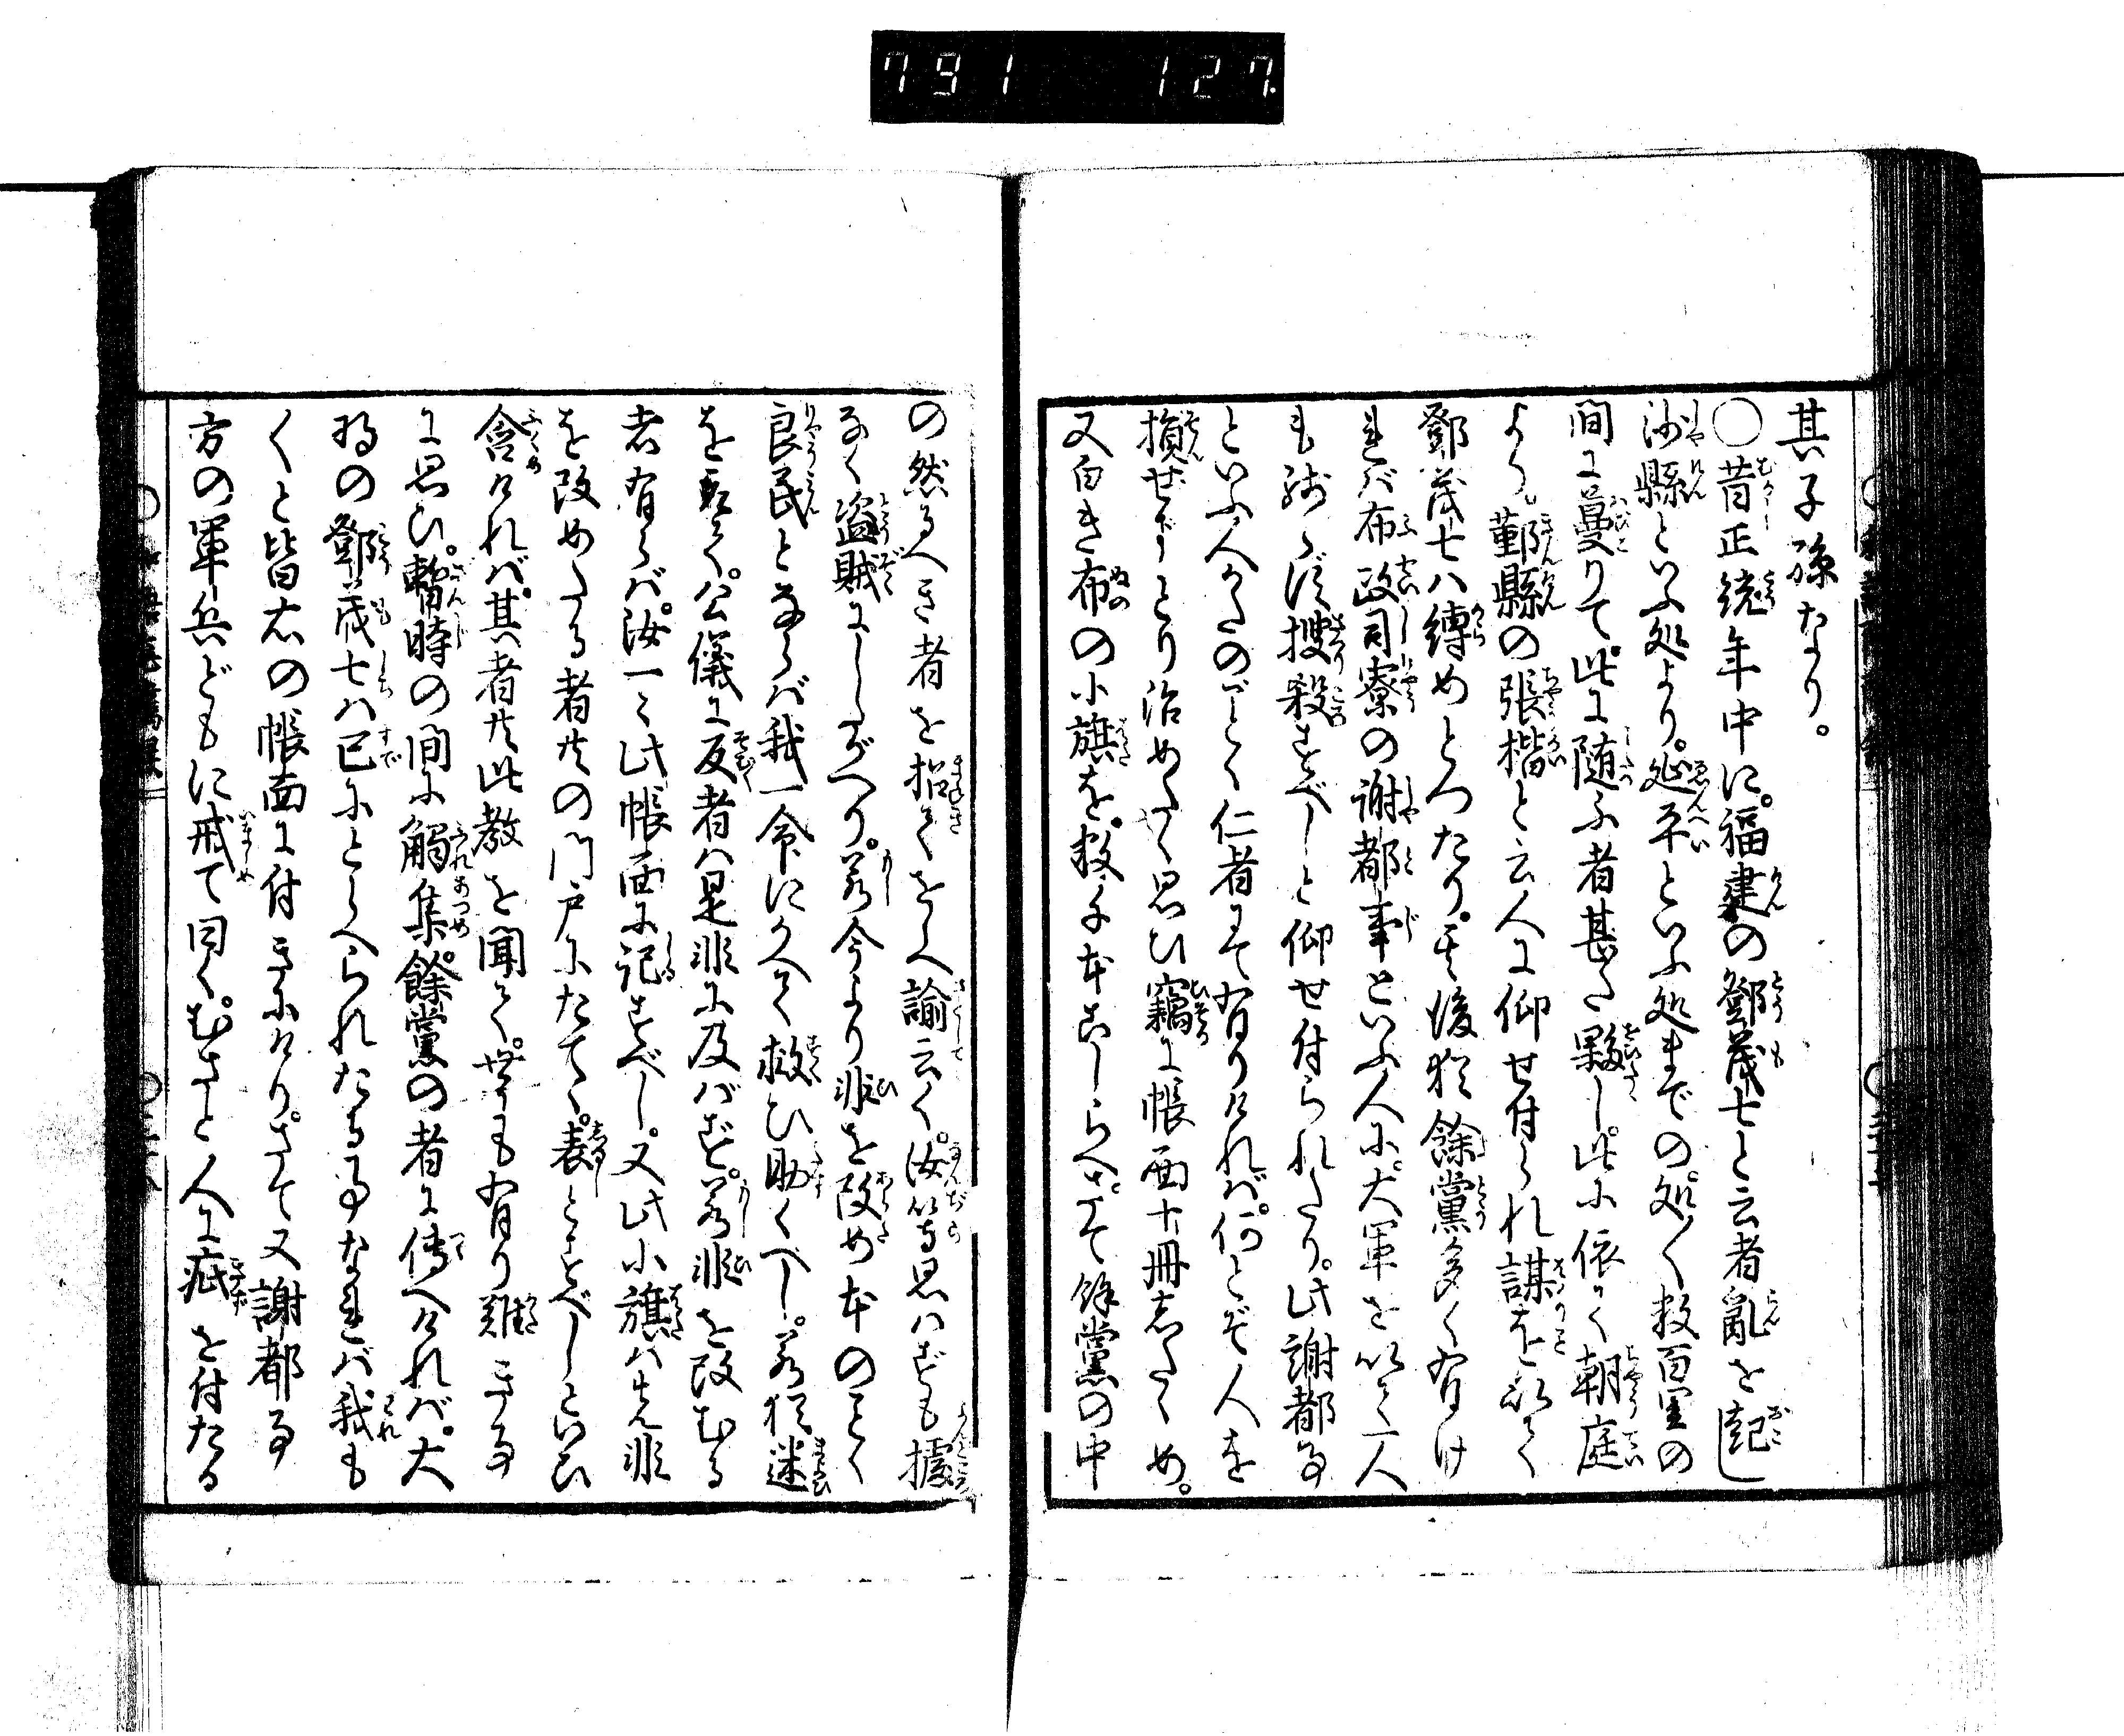 791 127
其子孫なり。
○昔正統年中に。福建の鄧茂七と云者亂を起し
沙縣といふ処より。延平といふ処までの。処〻数百里の
間に蔓りて。此に随ふ者甚た夥し。此に依て朝庭
より。鄞縣の張楷と云人に仰せ付られ謀を以て
鄧茂七ハ縛めとつたり。其後猶餘黨多く有け
れバ布政司寮の謝都事といふ人に。大軍を以て一人
も残らず捜殺すべしと仰せ付られたり。此謝都事
といふ人かたのごとく仁者にて有りけれバ。何とぞ人を
損せずとり治めたく思ひ竊に帳面十冊志たゝめ。
又白き布の小旗を。数千本こしらへ。さて餘黨の中
の然るへき者を招てをしへ諭云く。汝等思はずも據
なく盗賊にしたがへり。若今より非を改め本のごとく
良民とならバ我一令にかへて救ひ助くへし。若猶迷
を取て。公儀に反者ハ是非に及バず。若非を改むる
者有らバ。汝一〻此帳面に記すべし。又此小旗ハ先非
を改めたる者共の門戸にたてゝ。表とすべしといひ
含けれバ。其者共此教を聞て。世にも有り難き事
に思ひ。暫時の間に觸集。餘黨の者に傳へけれバ。大
将の鄧茂七ハ已にとらへられたる事なれバ我も
〱と皆右の帳面に付きにけり。さて又謝都事
方の軍兵どもに戒て曰く。むさと人に疵を付たる